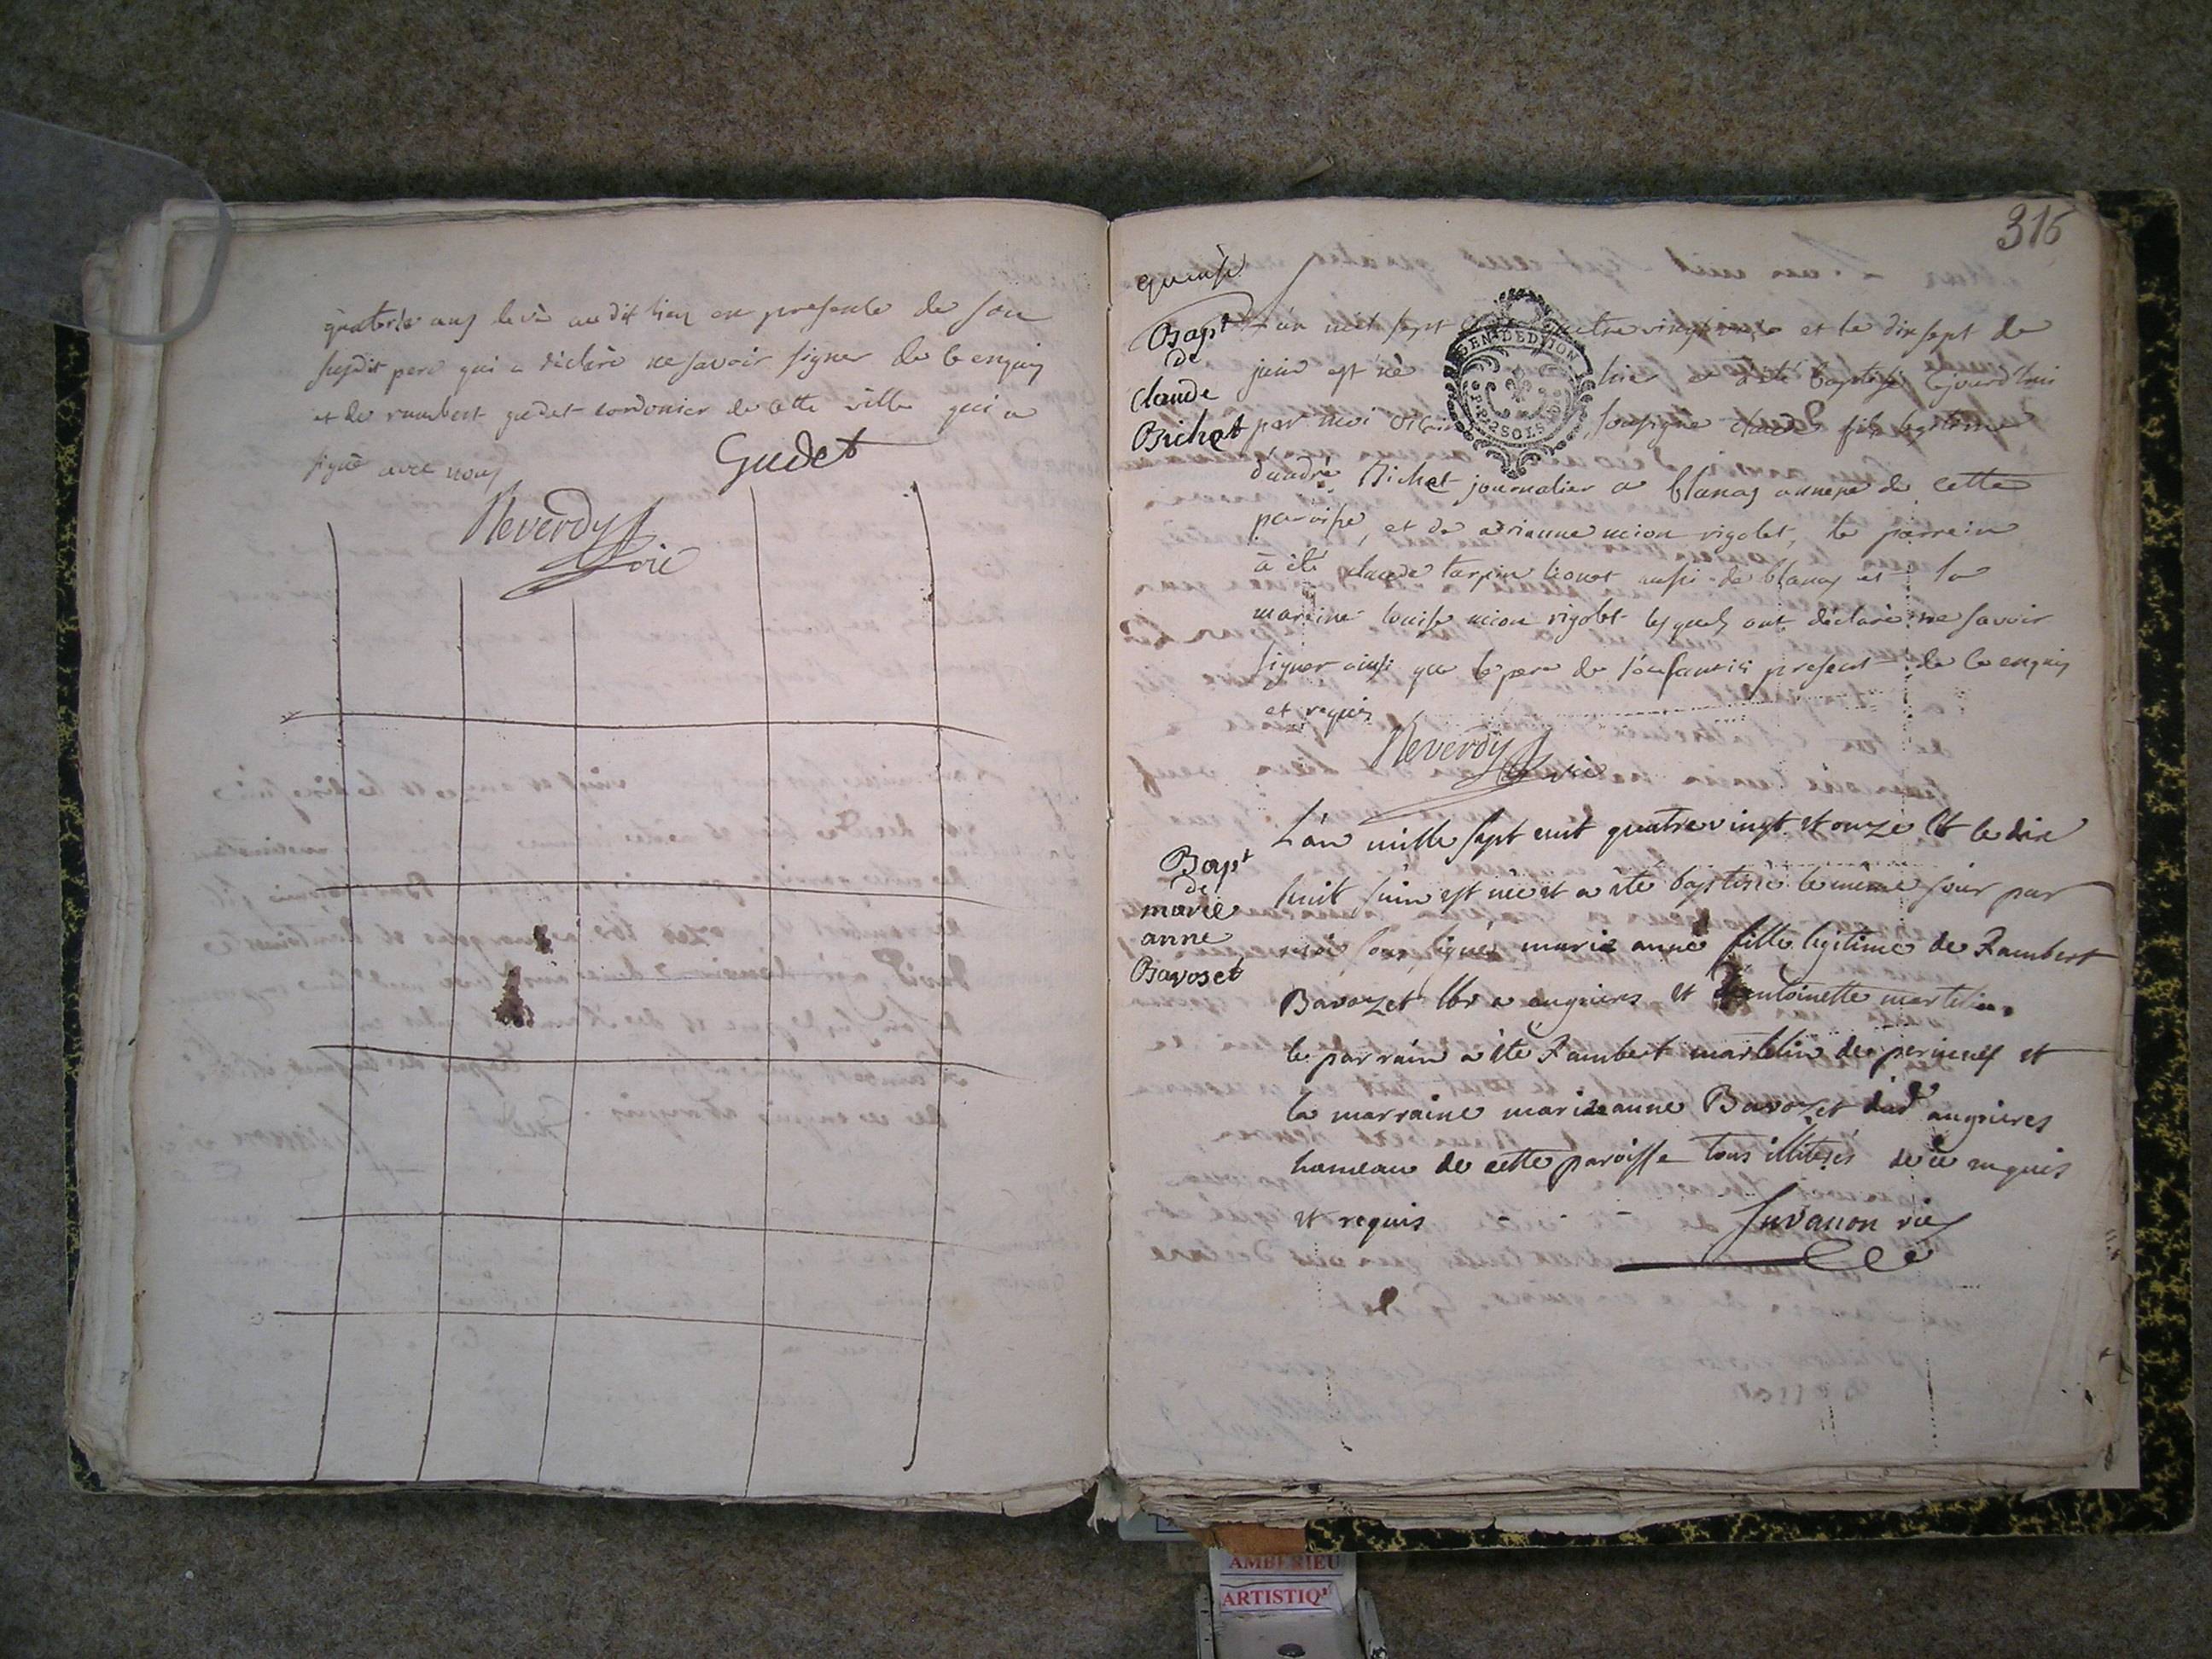 quatorse ans levé au dit lieu en presence de son
susdit pere qui a déclaré ne savoir signer de ce enquis
et de rambert gudet cordonier de cette ville qui a
signé avec nous Gudet
Reverdy vic
315
quense
Bapt
de
claude
Bichat
L'an mil sept quatre vingt onze et le dix sept de
juin est né hier et a été baptisé ajourd'hui
par moi vicaire soussigné claude fils legitime
d'andré Bichat journalier a blanas annexe de cette
paroisse, et de marianne mion rigolet, le parrein
à été claude tarpin lionet aussi de blanas et la
mareine louise mion rigolet lesquels ont déclaré ne savoir
signer ainsi que le pere de l'enfant ici present de ce enquis
et requis
Reverdy vic
Bapt
de
marie
anne
Bavoset
L'an mille sept cent quatre vingt et onze et le dix
huit juin est née et a été baptisée le même jour par
moi sous signé marie anne fille legitime de Rambert
Bavozet lbr a angrieres et d'antoinette martelin.
le parrain a été Rambert martelin de perieuf et
la marraine marie anne Bavozet dud angrieres
hameau de cette paroisse tous illiterés de ce enquis
et requis Juvanon vic
GEN. D'EDIJON
2 SOLS
AMBERIEU
ARTISTIQ'